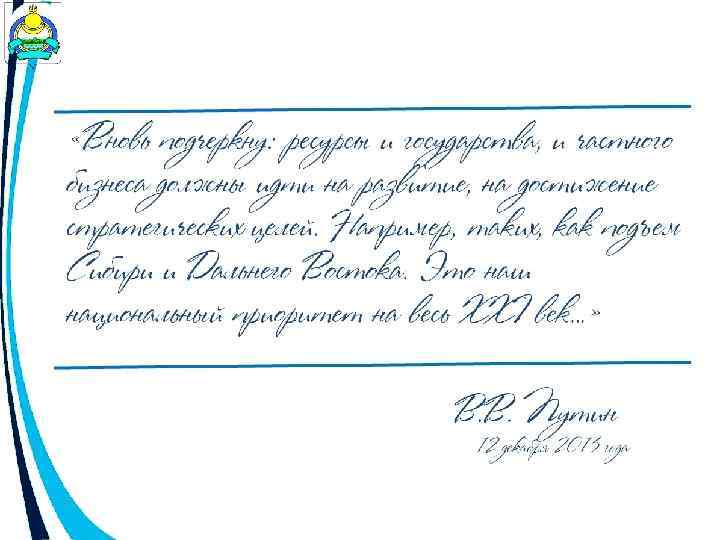 «Вновь подчеркну: ресурсы и государства, и частного
бизнеса должны идти на развитие, на достижение
стратегических целей. Например, таких, как подъем
Сибири и Дальнего Востока. Это наш
национальный приоритет на весь XXI век...»
В.В. Путин
12 декабря 2013 года